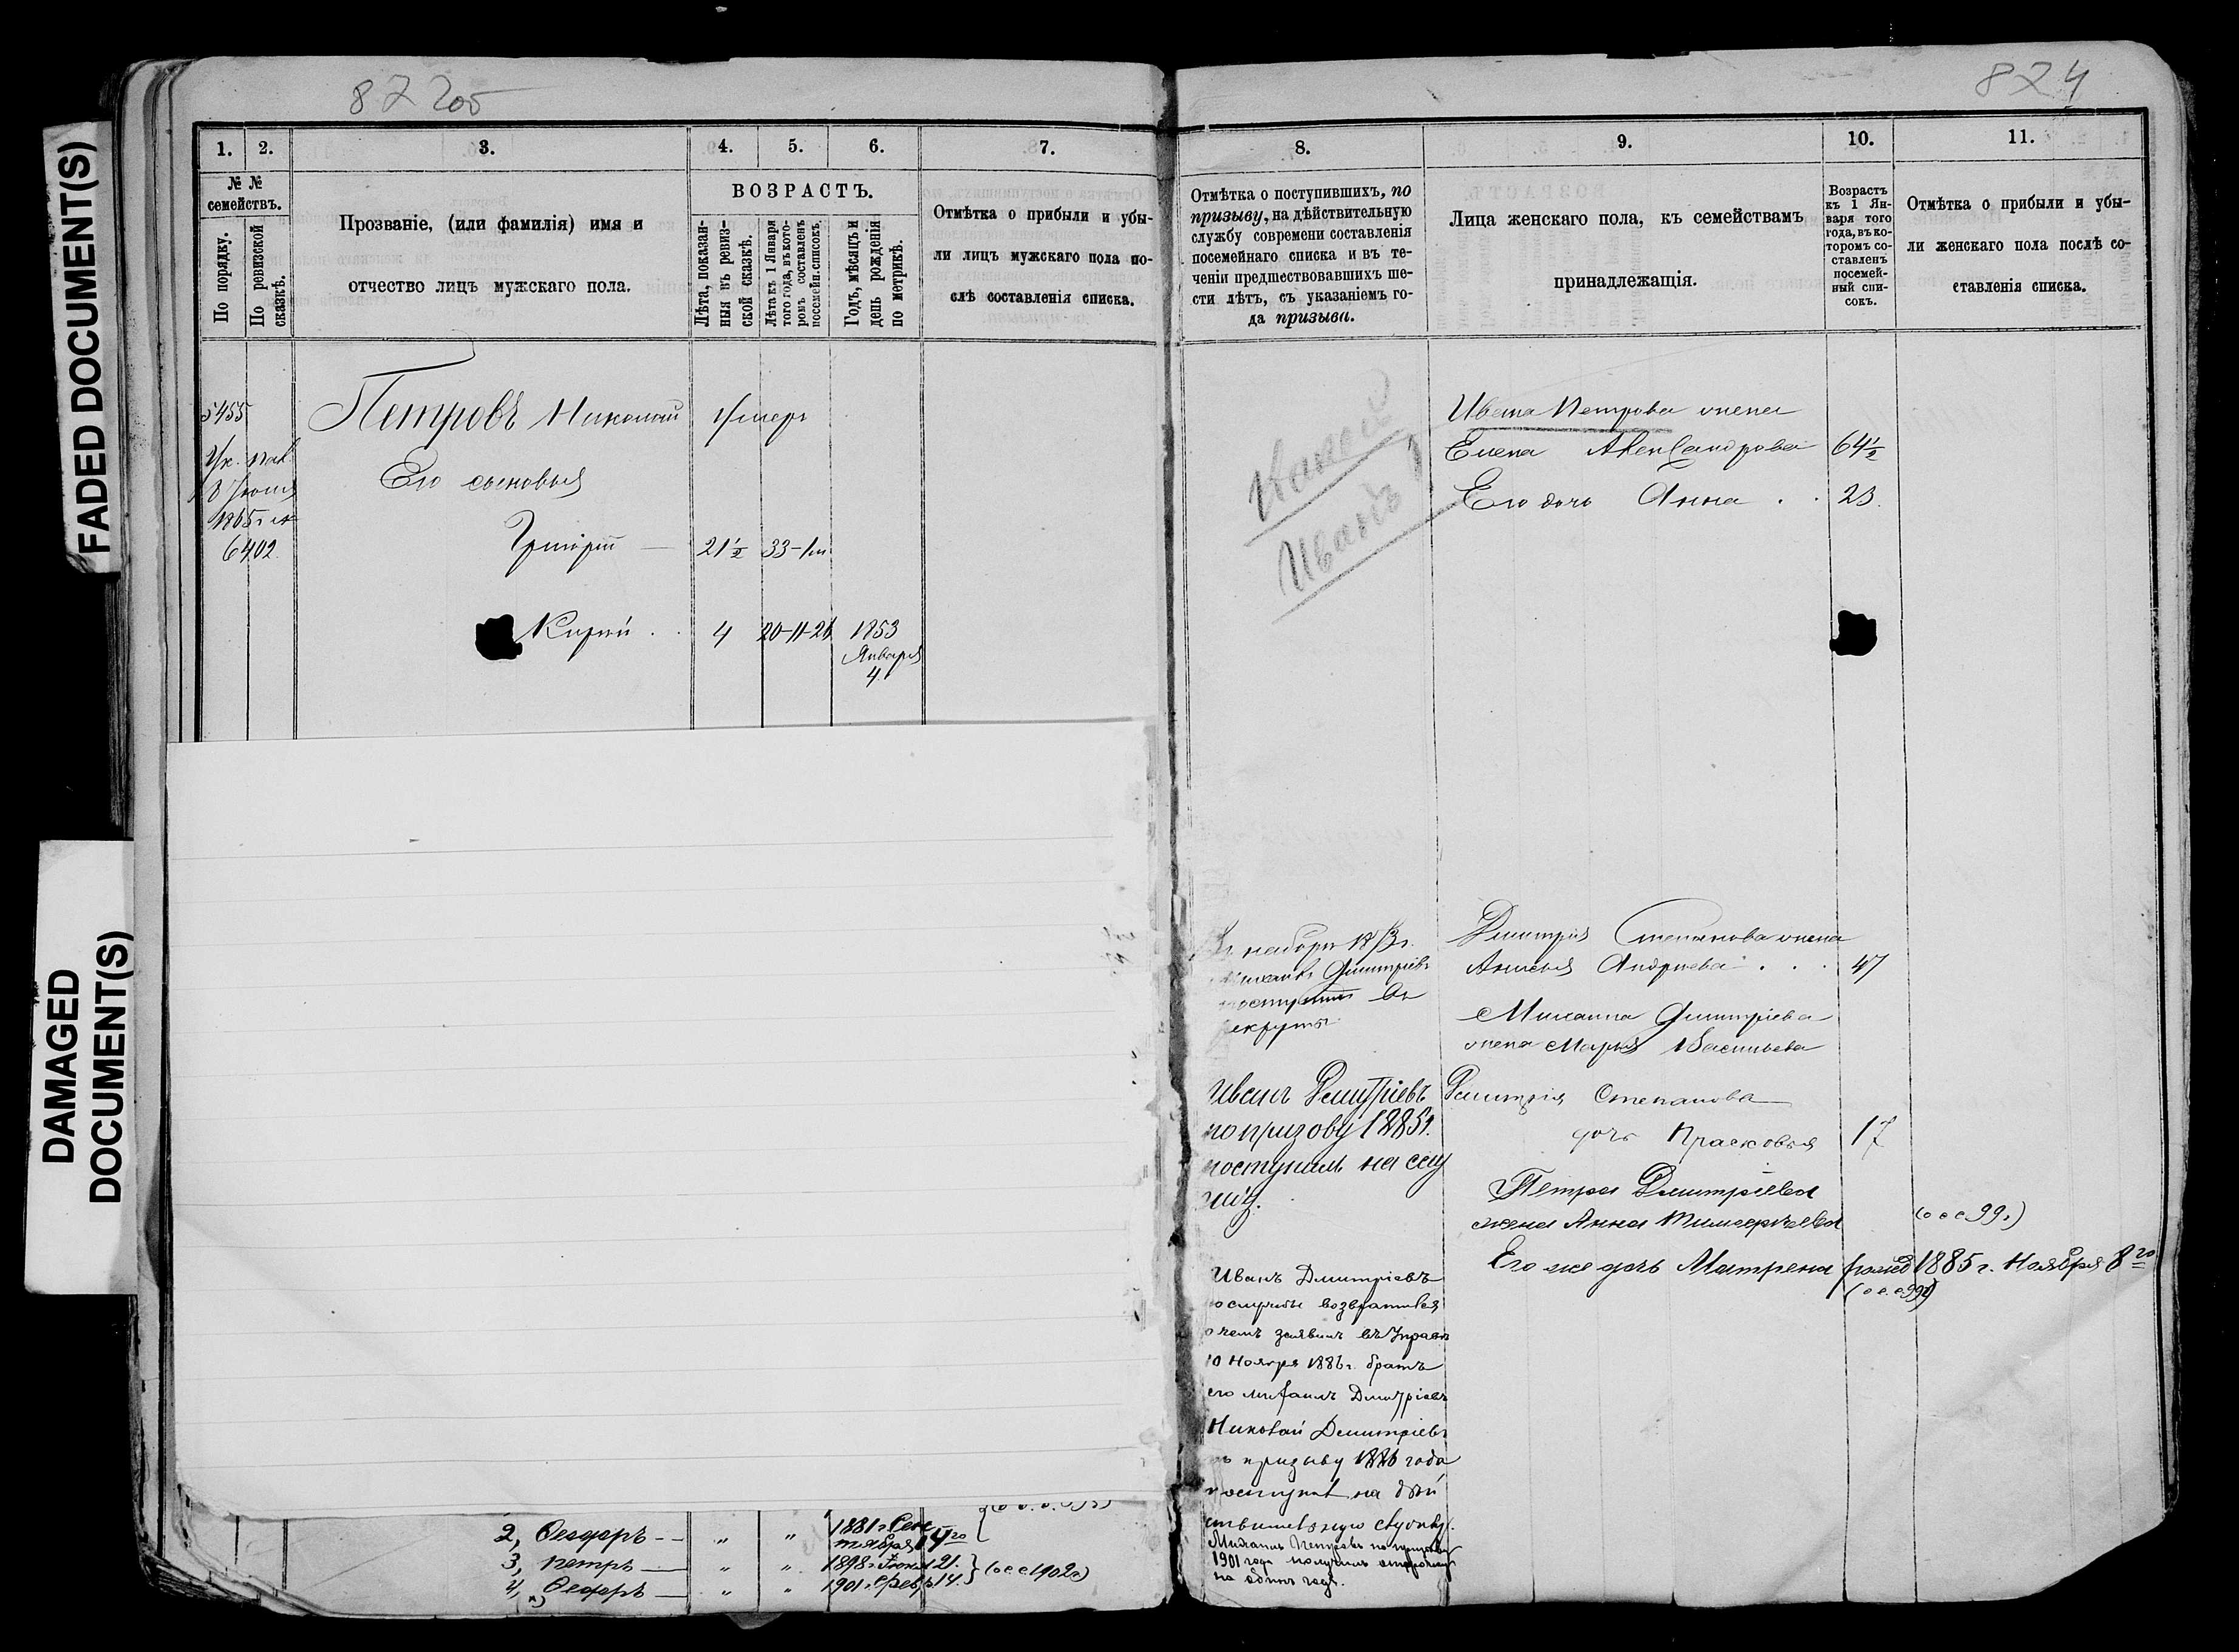 FADED DOCUMENT(S)
DAMAGED
DOCUMENT(S)
87 2об
1.
2.
3.
4.
5.
6.
7.
№ №
семействъ.
По порядку.
По ревизской
сказкѣ.
Прозваніе, (или фамилія) имя и
отчество лицъ мужскаго пола.
ВОЗРАСТЪ.
Лѣта, показан-
ныя въ ревиз-
ской сказкѣ.
Лѣта къ 1 Января
того года, въ кото-
ромъ составленъ
посемейн. списокъ.
Годъ, мѣсяцъ и
день рожденія
по метрикѣ.
Отмѣтка о прибыли и убы-
ли лицъ мужскаго пола по-
слѣ составленія списка.
5455
8 Іюня
1865 г.
6402.
Петровъ Николай умеръ
Его сыновья
Григорій — 21½ 33-1м
Кирил . . 4 20-11-26 1853
Января
4
2, Ѳеодоръ — „ „ 1881 г. Сен
тября 14го
3, Петръ — „ „ 1898 г. Іюня 21.
4, Ѳеодоръ — „ „ 1901. Февр. 14. (о с с 1902г)
824
8.
9.
10.
11.
Отмѣтка о поступившихъ, по
призыву, на дѣйствительную
службу современи составленія
посемейнаго списка и въ те-
ченіи предшествовавшихъ ше-
сти лѣтъ, съ указаніемъ го-
да призыва.
Лица женскаго пола, къ семействамъ
принадлежащія.
Возрастъ
къ 1 Ян-
варя того
года, въ ко-
торомъ со-
ставленъ
посемей-
ный спи-
сокъ.
Отмѣтка о прибыли и убы-
ли женскаго пола послѣ со-
ставленія списка.
Иванъ
Ивана Петрова жена
Елена Александрова 64½
Его дочь Анна . . 23.
Въ наборъ 1873 г.
Михаилъ Димитріевъ
поступилъ въ
рекруты
Дмитрія Степанова жена
Аксинья Андреева . . . 47
Михаила Димитріева
жена Марья Васильева
Иванъ Дмитріевъ
по призову 1885 г.
поступилъ на слу
жбу.
Дмитрія Степанова
дочь Прасковья 17
Петра Дмитріева
жена Анна Тимофѣева (о с с 99г.)
Его же дочь Матрена рожд 1885 г. Ноября 8го
(о с. с 99г)
Иванъ Дмитріевъ
со службы возвратился
о чемъ заявилъ въ Управѣ
10 Ноября 1886 г. братъ
его Михаилъ Дмитріевъ
Николай Дмитріевъ
по призыву 1886 года
поступилъ на дѣй
ствительную службу.
Михаилъ Петровъ по призыву
1901 года получилъ отсрочку
на одинъ годъ.